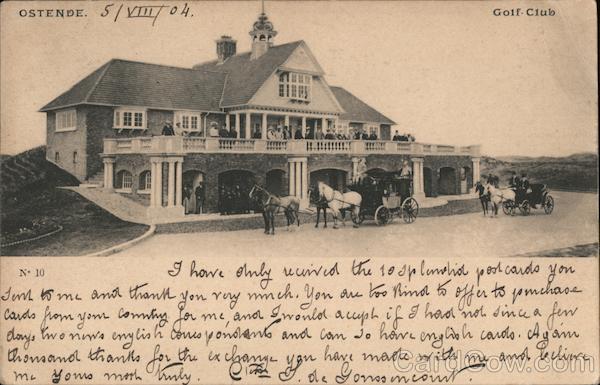 OSTENDE. 5/VIII/04.
Golf-Club
N° 10
I have only received the 10 splendid postcards you
sent to me and thank you very much. You are too kind to offer to purchase
cards from your country for me and I would accept if I had not since a few
days two news english correspondants and can so have english cards. Again
thousand thanks for the exchange you have made with me and believe
me yours most truly. J. de Gonssencourt
CardCow.com